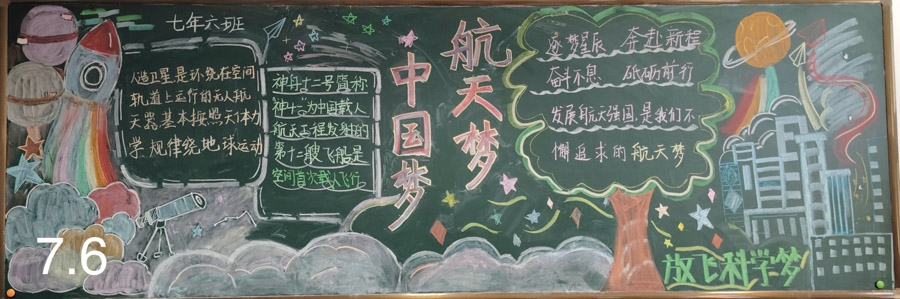 七年六班
人造卫星是环绕在空间
轨道上运行的无人航
天器基本按照天体力
学规律绕地球运动
神舟十二号简称
神十二为中国载人
航天工程发射的
第十二艘飞船是
空间首次载人飞行
中国梦
航天梦
逐梦星辰 奔赴新程
奋斗不息 砥砺前行
发展航天强国,是我们不
懈追求的航天梦
放飞科学梦
7.6